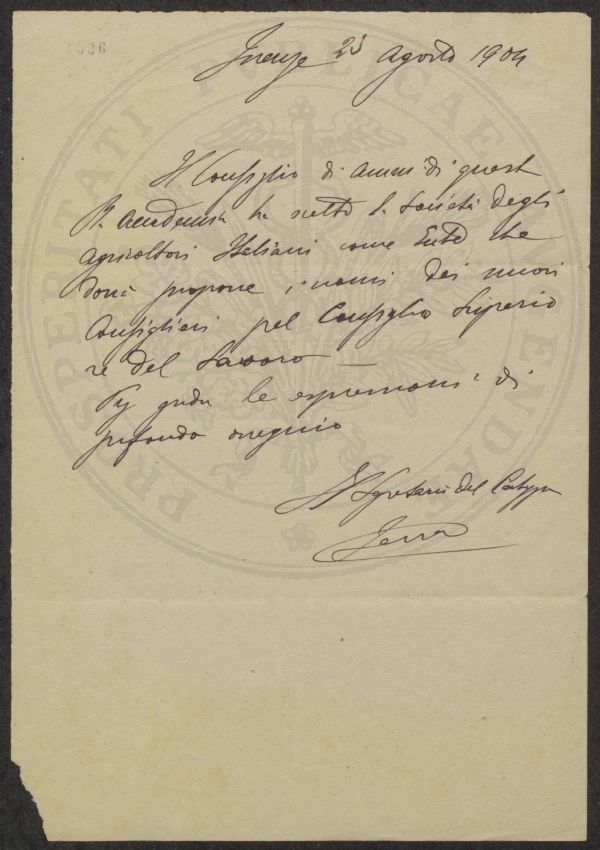 1526
Firenze 25 Agosto 1904
Il Consiglio di Amm di quest
R. Accademia ha scelto la Società degli
Agricoltori Italiani come Ente che
dovrà propone i nomi dei nuovi
Consiglieri pel Consiglio Superio
re del Lavoro —
le espressioni di
profondo ossequio
Il Segretario del
PROSPERITATI PUBLICAE AUGENDAE